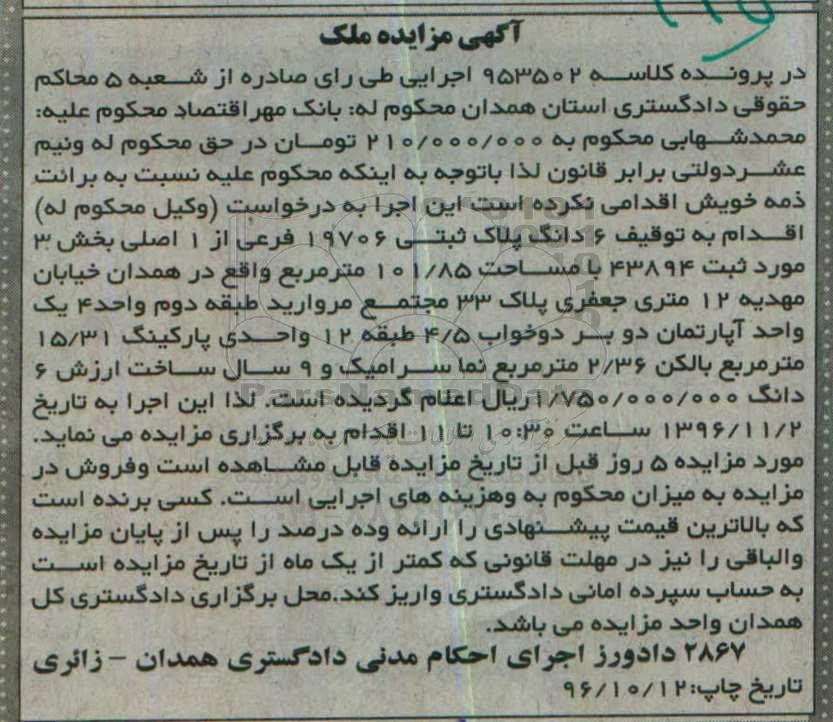 ۱۱۵
آگهی مزایده ملک
در پرونده کلاسه ۹۵۳۵۰۲ اجرایی طی رای صادره از شعبه ۵ محاکم
حقوقی دادگستری استان همدان محکوم له: بانک مهراقتصاد محکوم علیه:
محمدشهابی محکوم به ۲۱۰/۰۰۰/۰۰۰ تومان در حق محکوم له ونیم
عشردولتی برابر قانون لذا باتوجه به اینکه محکوم علیه نسبت به برائت
ذمه خویش اقدامی نکرده است این اجرا به درخواست (وکیل محکوم له)
اقدام به توقیف ۶ دانگ پلاک ثبتی ۱۹۷۰۶ فرعی از ۱ اصلی بخش ۳
مورد ثبت ۴۳۸۹۴ با مساحت ۱۰۱/۸۵ مترمربع واقع در همدان خیابان
مهدیه ۱۲ متری جعفری پلاک ۳۳ مجتمع مروارید طبقه دوم واحد۴ یک
واحد آپارتمان دو بر دوخواب ۴/۵ طبقه ۱۲ واحدی پارکینگ ۱۵/۳۱
مترمربع بالکن ۲/۳۶ مترمربع نما سرامیک و ۹ سال ساخت ارزش ۶
دانگ ۱/۷۵۰/۰۰۰/۰۰۰ریال اعلام گردیده است. لذا این اجرا به تاریخ
۱۳۹۶/۱۱/۲ ساعت ۱۰:۳۰ تا ۱۱ اقدام به برگزاری مزایده می نماید.
مورد مزایده ۵ روز قبل از تاریخ مزایده قابل مشاهده است وفروش در
مزایده به میزان محکوم به وهزینه های اجرایی است. کسی برنده است
که بالاترین قیمت پیشنهادی را ارائه وده درصد را پس از پایان مزایده
والباقی را نیز در مهلت قانونی که کمتر از یک ماه از تاریخ مزایده است
به حساب سپرده امانی دادگستری واریز کند.محل برگزاری دادگستری کل
همدان واحد مزایده می باشد.
۲۸۶۷ دادورز اجرای احکام مدنی دادگستری همدان – زائری
تاریخ چاپ:۹۶/۱۰/۱۲
ParsNamadData